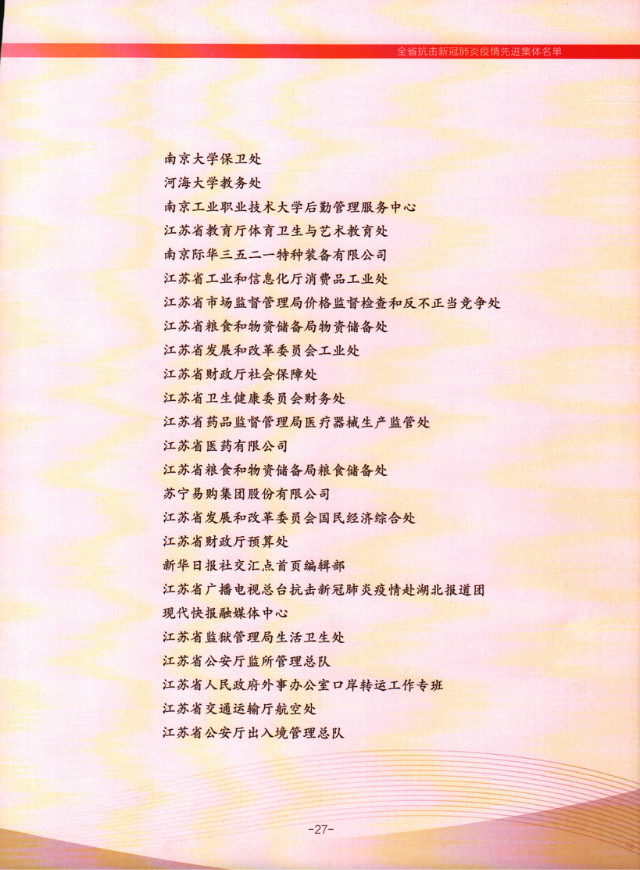 全省抗击新冠肺炎疫情先进集体名单
南京大学保卫处
河海大学教务处
南京工业职业技术大学后勤管理服务中心
江苏省教育厅体育卫生与艺术教育处
南京际华三五二一特种装备有限公司
江苏省工业和信息化厅消费品工业处
江苏省市场监督管理局价格监督检查和反不正当竞争处
江苏省粮食和物资储备局物资储备处
江苏省发展和改革委员会工业处
江苏省财政厅社会保障处
江苏省卫生健康委员会财务处
江苏省药品监督管理局医疗器械生产监管处
江苏省医药有限公司
江苏省粮食和物资储备局粮食储备处
苏宁易购集团股份有限公司
江苏省发展和改革委员会国民经济综合处
江苏省财政厅预算处
新华日报社交汇点首页编辑部
江苏省广播电视总台抗击新冠肺炎疫情赴湖北报道团
现代快报融媒体中心
江苏省监狱管理局生活卫生处
江苏省公安厅监所管理总队
江苏省人民政府外事办公室口岸转运工作专班
江苏省交通运输厅航空处
江苏省公安厅出入境管理总队
-27-